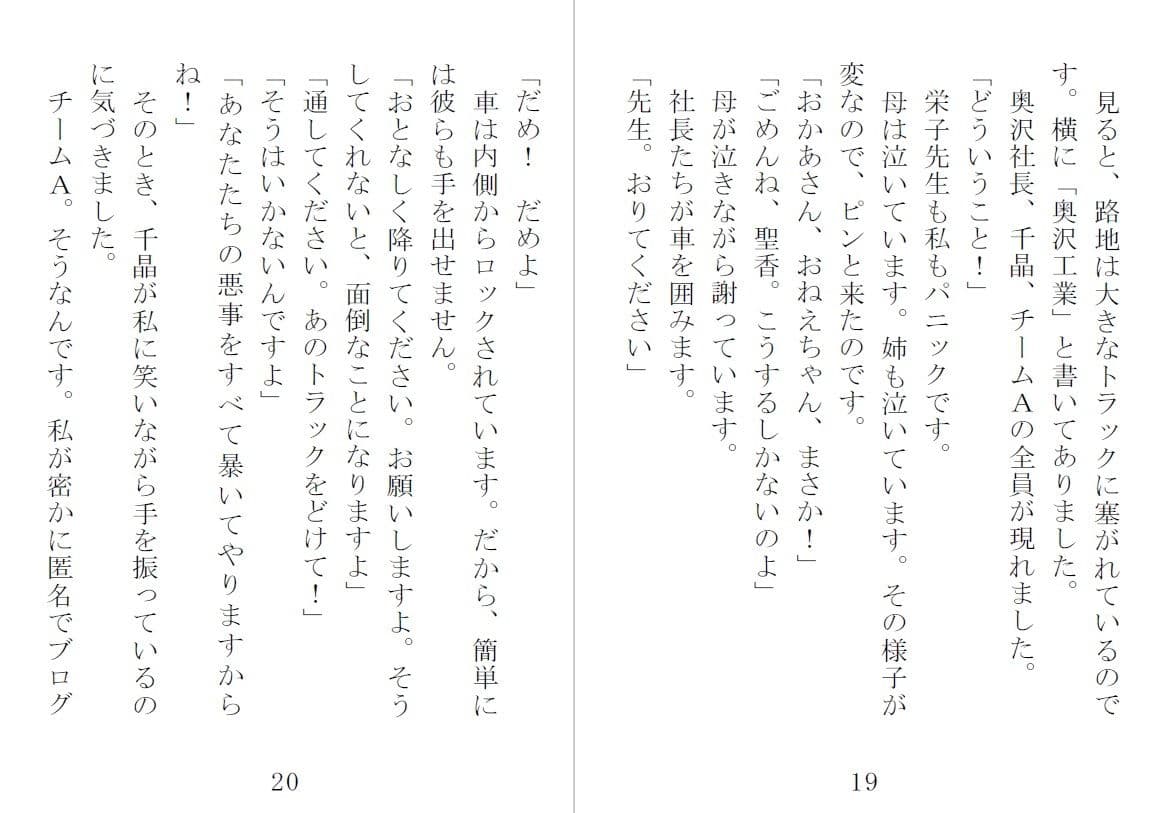 見ると、路地は大きなトラックに塞がれているので
す。横に「奥沢工業」と書いてありました。
奥沢社長、千晶、チームＡの全員が現れました。
「どういうこと！」
栄子先生も私もパニックです。
母は泣いています。姉も泣いています。その様子が
変なので、ピンと来たのです。
「おかあさん、おねえちゃん、まさか！」
「ごめんね、聖香。こうするしかないのよ」
母が泣きながら謝っています。
社長たちが車を囲みます。
「先生。おりてください」
19
「だめ！　だめよ」
車は内側からロックされています。だから、簡単に
は彼らも手を出せません。
「おとなしく降りてください。お願いしますよ。そう
してくれないと、面倒なことになりますよ」
「通してください。あのトラックをどけて！」
「そうはいかないんですよ」
「あなたたちの悪事をすべて暴いてやりますから
ね！」
そのとき、千晶が私に笑いながら手を振っているの
に気づきました。
チームＡ。そうなんです。私が密かに匿名でブログ
20